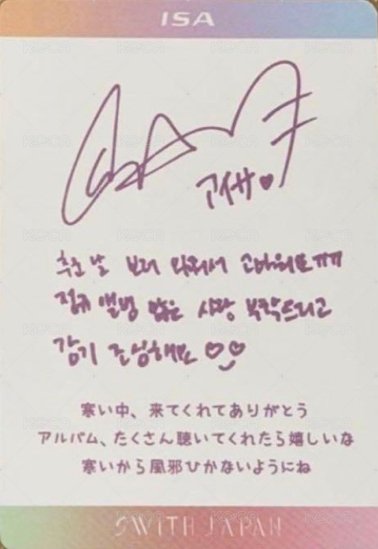 ISA
アイサ♡
추운 날 보러 와줘서 고마워요ㄲㄲ
정규 앨범 많은 사랑 부탁드리고
감기 조심해요 ♡
寒い中、来てくれてありがとう
アルバム、たくさん聴いてくれたら嬉しいな
寒いから風邪ひかないようにね
SWITH JAPAN